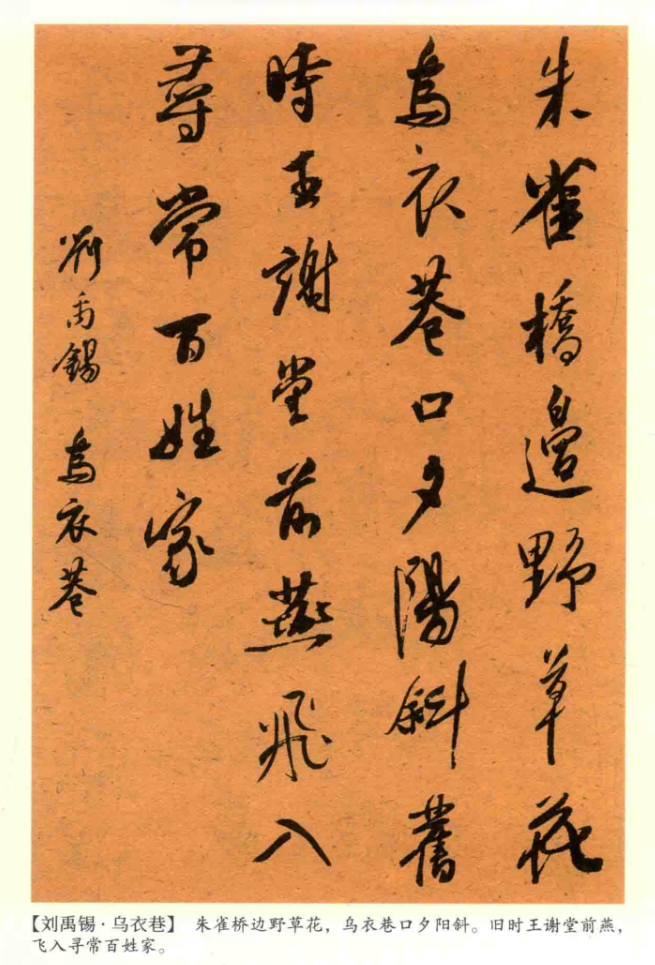 朱雀橋邊野草花
烏衣巷口夕陽斜舊
時王謝堂前燕飛入
尋常百姓家
劉禹錫 烏衣巷
【刘禹锡·乌衣巷】 朱雀桥边野草花，乌衣巷口夕阳斜。旧时王谢堂前燕，
飞入寻常百姓家。